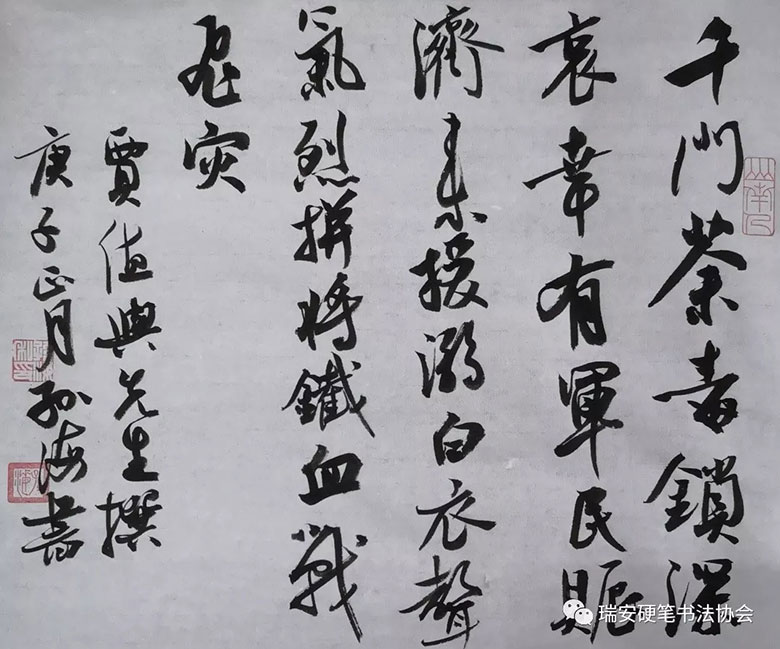 千門荼毒鎖深
哀幸有軍民賑
濟来援溺白衣聲
氣烈拼將鐵血戰
飛灾
賈先生撰
庚子正月孙海書
瑞安硬笔书法协会